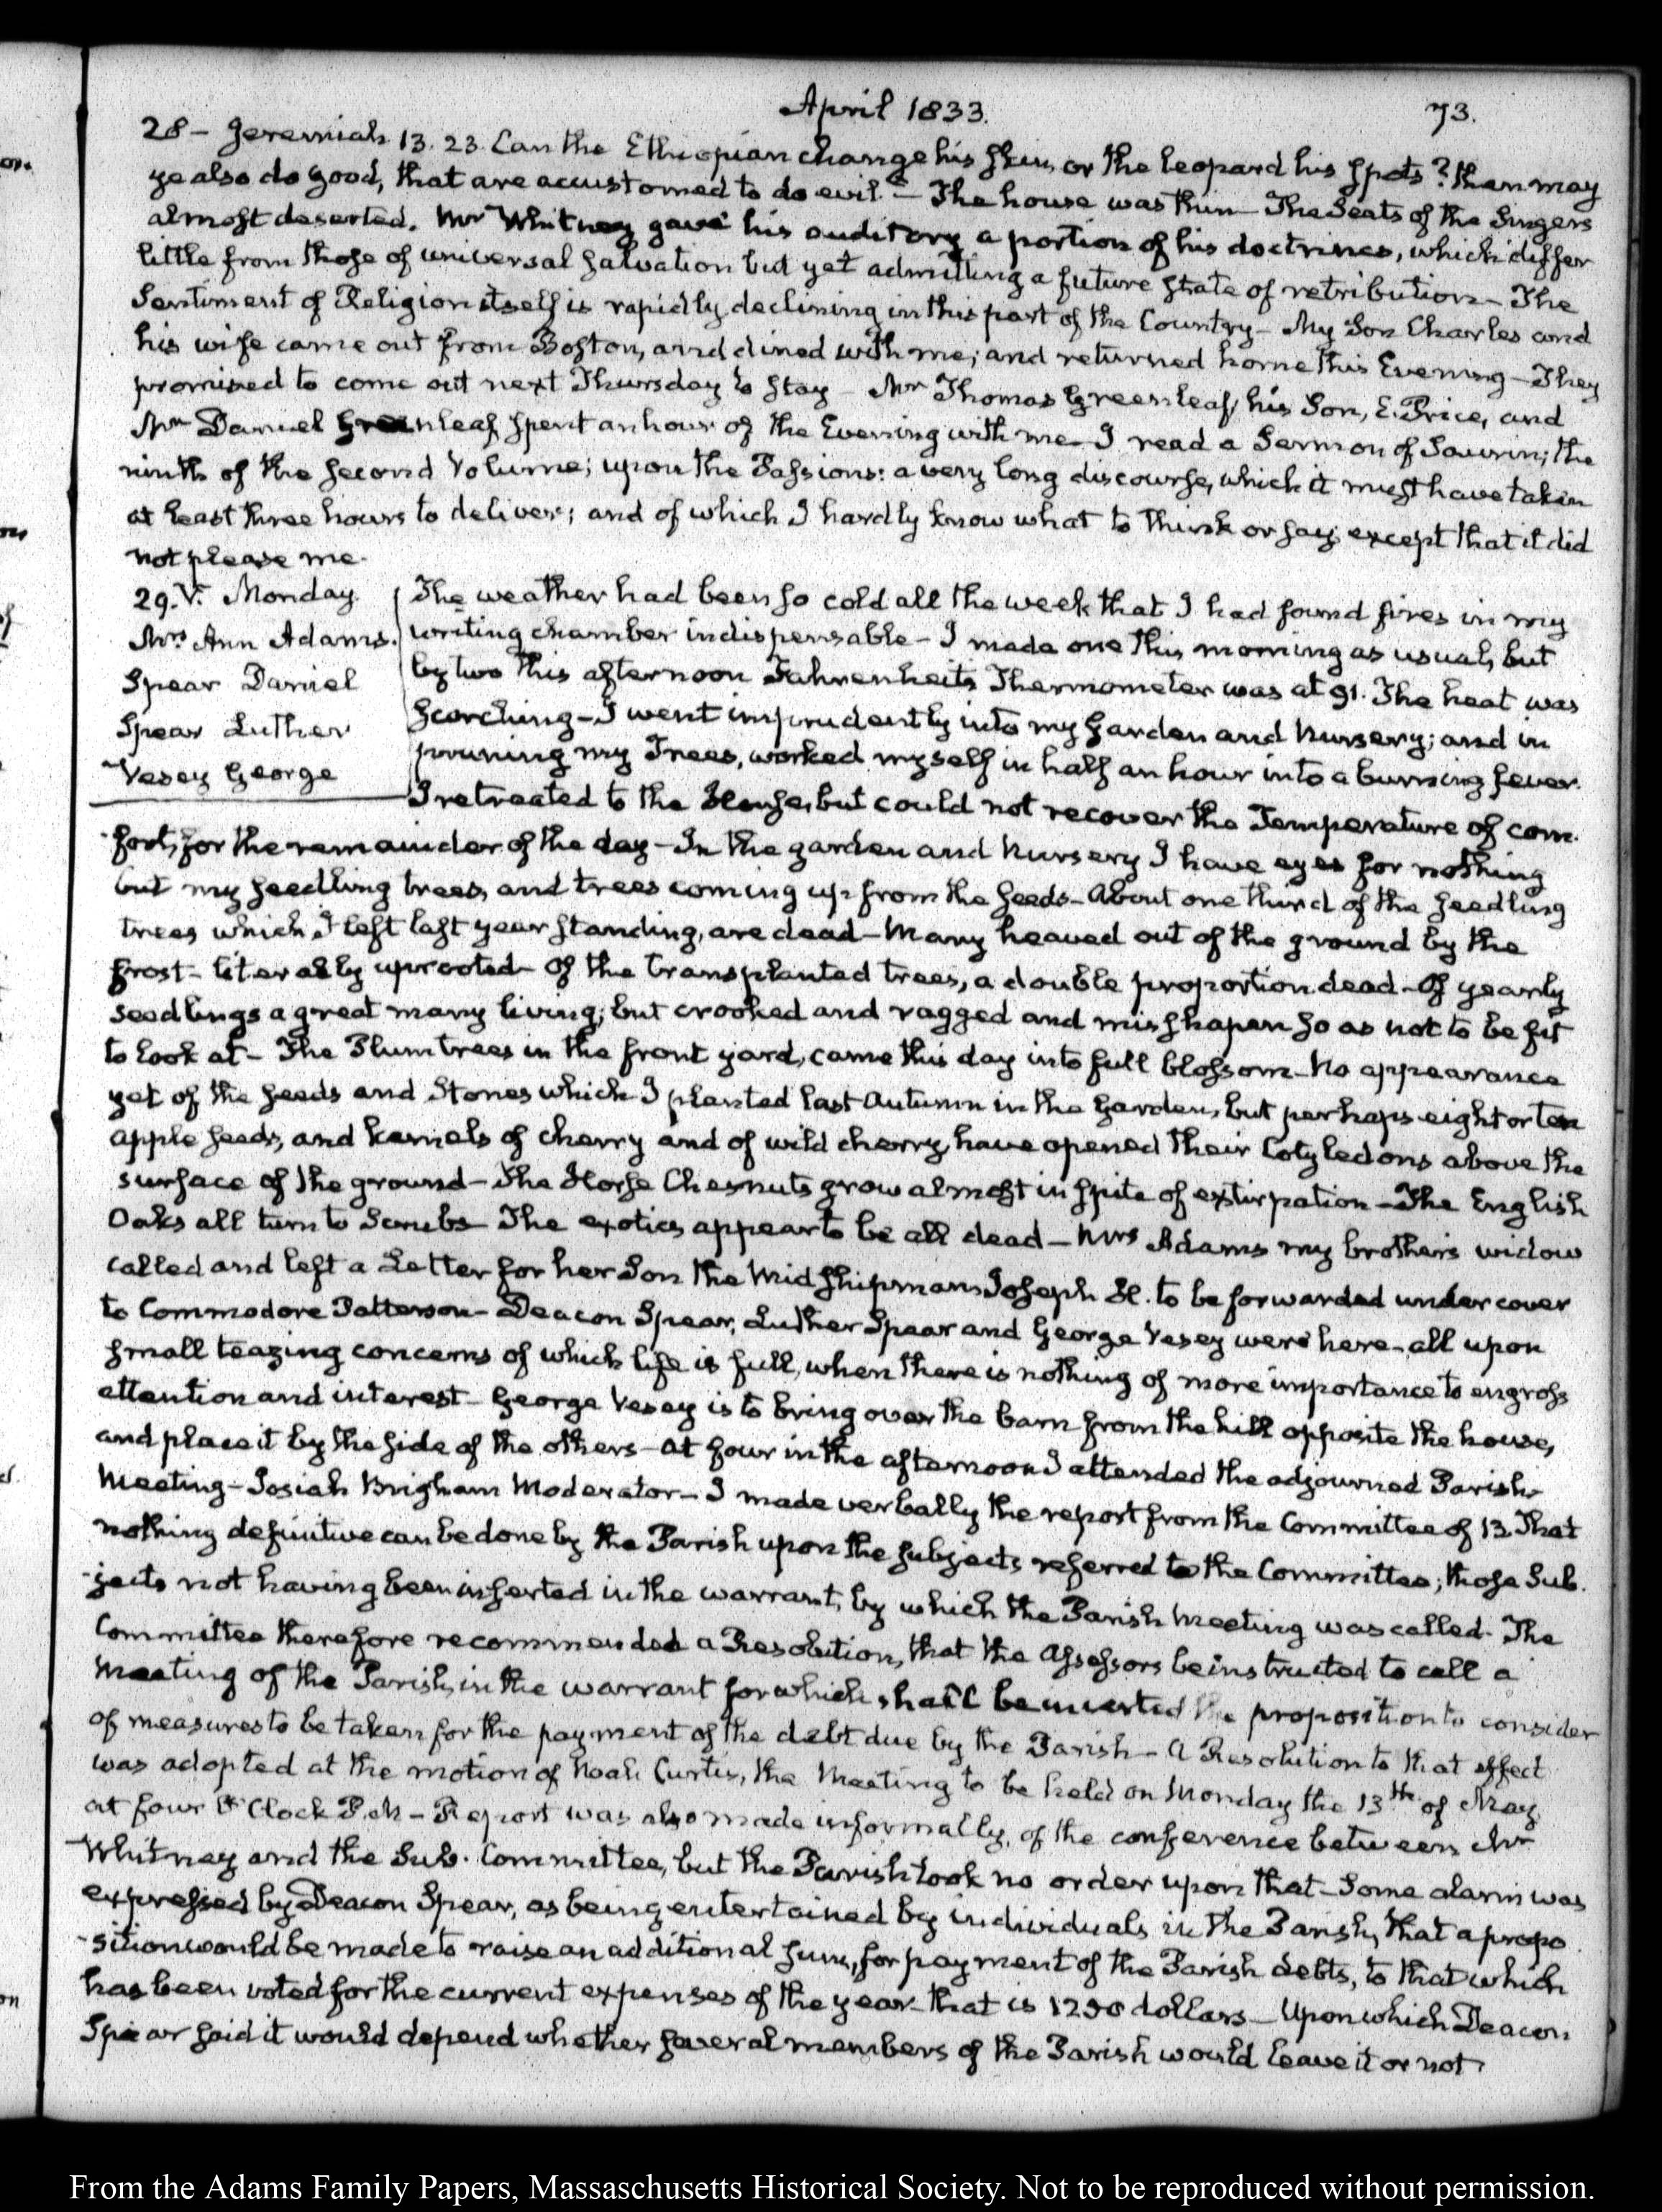 April 1833.
73.
28 - Jeremiah 13. 23. Can the Ethiopian change his skin, or the leopard his spots? then may
ye also do good, that are accustomed to do evil. - The house was thin - The Seats of the Singers
almost deserted. Mr Whitney gave his auditory a portion of his doctrines, which differ
little from those of universal salvation but yet admitting a future state of retribution - The
Sentiment of Religion itself is rapidly declining in this part of the Country - My Son Charles and
his wife came out from Boston, and dined with me; and returned home this Evening - They
promised to come out next Thursday to stay - Mr Thomas Greenleaf, his Son, E. Price, and
Mr Daniel Greenleaf spent an hour of the Evening with me - I read a Sermon of Saurin; the
ninth of the second Volume; upon the Passions: a very long discourse, which it must have taken
at least three hours to deliver; and of which I hardly know what to think or say, except that it did
not please me.
29. V. Monday.
Mrs. Ann Adams.
Spear Daniel
Spear Luther
Vesey George
The weather had been so cold all the week that I had found fires in my
writing chamber indispensable - I made one this morning as usual, but
by two this afternoon Fahrenheit's Thermometer was at 91. The heat was
scorching - I went imprudently into my Garden and Nursery; and in
pruning my Trees, worked myself in half an hour into a burning fever.
I retreated to the House, but could not recover the Temperature of com-
-fort, for the remainder of the day - In the garden and Nursery I have eyes for nothing
but my seedling trees, and trees coming up from the seeds - About one third of the seedling
trees which I left last year standing, are dead - Many heaved out of the ground by the
frost - literally uprooted - Of the transplanted trees, a double proportion dead - Of yearly
seedlings a great many living; but crooked and ragged and misshapen so as not to be fit
to look at - The Plum trees in the front yard, came this day into full blossom - No appearance
yet of the seeds and Stones which I planted last Autumn in the Garden, but perhaps eight or ten
apple seeds, and kernels of cherry and of wild cherry, have opened their Cotyledons above the
surface of the ground - The Horse Chesnuts grow almost in spite of extirpation - The English
Oaks all turn to Scrubs - The exotics appear to be all dead - Mrs Adams my brother's widow
called and left a Letter for her Son the Midshipman Joseph H. to be forwarded under cover
to Commodore Patterson - Deacon Spear, Luther Spear and George Vesey were here - all upon
small teazing concerns of which life is full, when there is nothing of more importance to engross
attention and interest - George Vesey is to bring over the barn from the hill opposite the house,
and place it by the side of the others - At four in the afternoon I attended the adjourned Parish
Meeting - Josiah Brigham Moderator - I made verbally the report from the Committee of 13. That
nothing definitive can be done by the Parish upon the subjects referred to the Committee; those Sub-
-jects not having been inserted in the warrant, by which the Parish Meeting was called. The
Committee therefore recommended a Resolution, that the Assessors be instructed to call a
Meeting of the Parish, in the warrant for which shall be inserted the proposition to consider
of measures to be taken for the payment of the debt due by the Parish - A Resolution to that effect
was adopted at the motion of Noah Curtis, the Meeting to be held on Monday the 13th of May
at four O'Clock P.M - Report was also made informally, of the conference between Mr
Whitney and the Sub. Committee, but the Parish took no order upon that - Some alarm was
expressed by Deacon Spear, as being entertained by individuals in the Parish, that a propo
-sition would be made to raise an additional sum, for payment of the Parish debts, to that which
has been voted for the current expenses of the year - that is 1250 dollars - Upon which Deacon
Spear said it would depend whether several members of the Parish would leave it or not
From the Adams Family Papers, Massachusetts Historical Society. Not to be reproduced without permission.